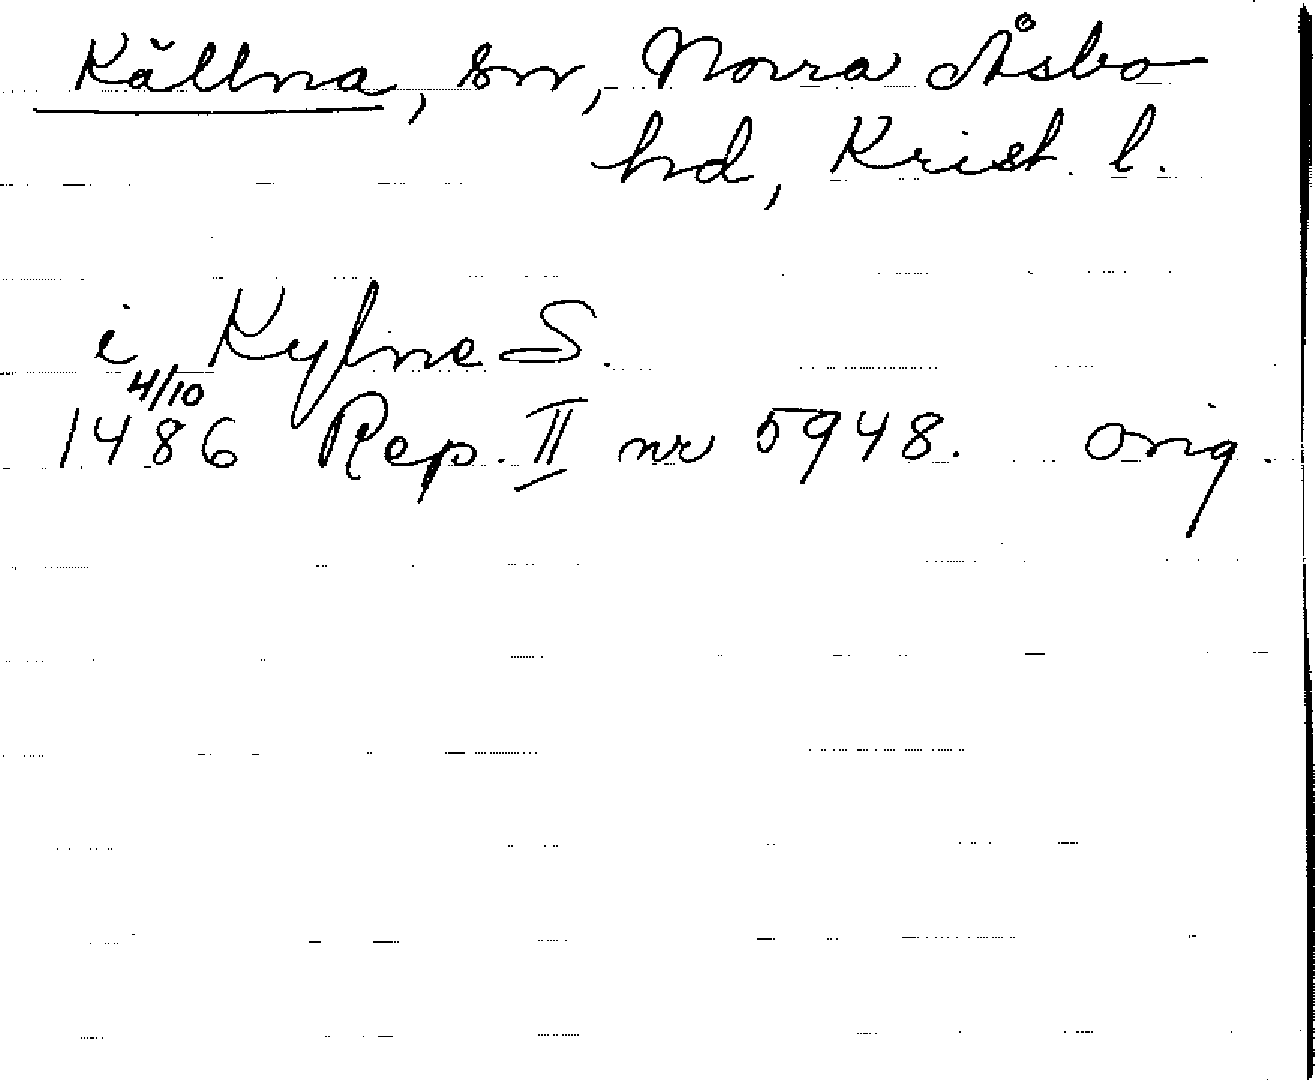 Källna, sn, Norra Åsbo
hd, Krist. l.
i Kylne S.
4/10
1486 Rep. II nr 5948. orig.